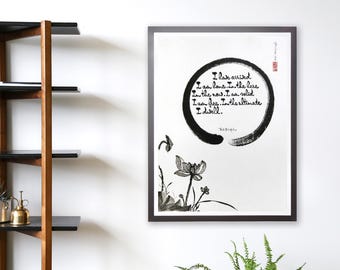 I have arrived
I am home. In the here
In the now. I am solid
I am free. In the ultimate
I dwell.